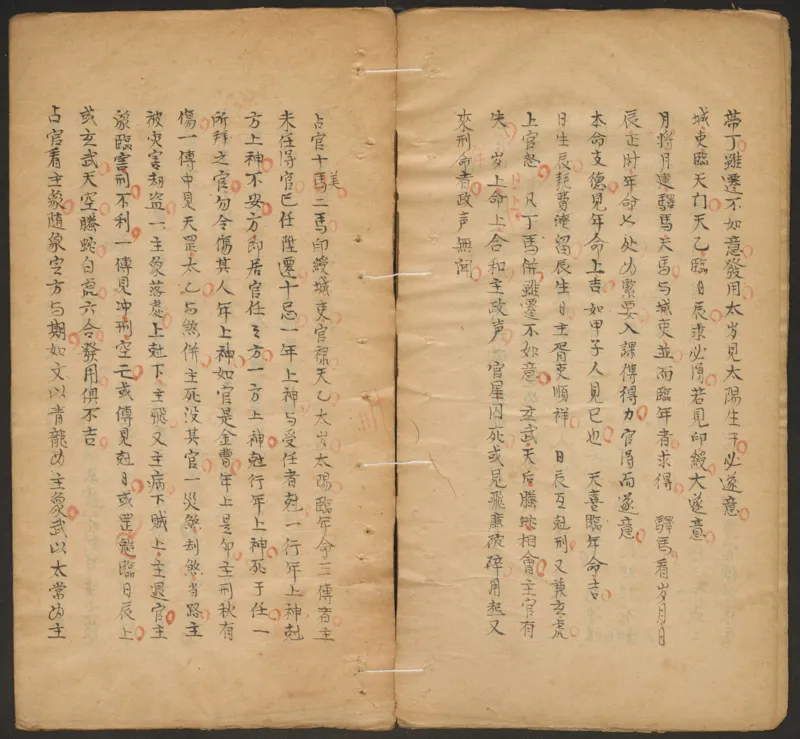 帶丁雖遷不如意發用太岁見太陽生于必遂意
城吏臨天门天乙臨日辰求必得若見印綬大遂意
月將月建驛馬天馬与城吏並而臨年者求得 驛馬看岁月日
辰正时年命七处为緊要入課傳得力官得而遂意
本命支德見年命上吉如甲子人見巳也 天喜臨年命吉
日生辰耗費淹留辰生日主胥吏順祥 日辰互尅刑又乘玄虎
上官怒 凡丁馬併雖遷不如意 玄武天后騰蛇相會主官有
失 岁上命上合和主政声 官星囚死或見飛廉破碎用起又
來刑命者政声無闻
占官十美馬二馬印綬城吏官祿天乙太岁太陽臨年命三傳者主
未任得官已任陞遷十忌一年上神与受任者尅一行年上神尅
方上神不安方即居官任之方一方上神尅行年上神死于任一
所拜之官勿令傷其人年上神如官是金曹年上是午主刑秋有
傷一傳中見天罡太乙与煞併主死没其官一災煞刦煞当路主
被灾害刼盗一主象落處上尅下主飛又主病下賊上主退官主
象臨害刑不利一傳見冲刑空亡或傳見尅日或罡魁臨日辰上
或玄武天空騰蛇白虎六合發用俱不吉
占官看主象随象定方与期如文以青龍为主象武以太常为主